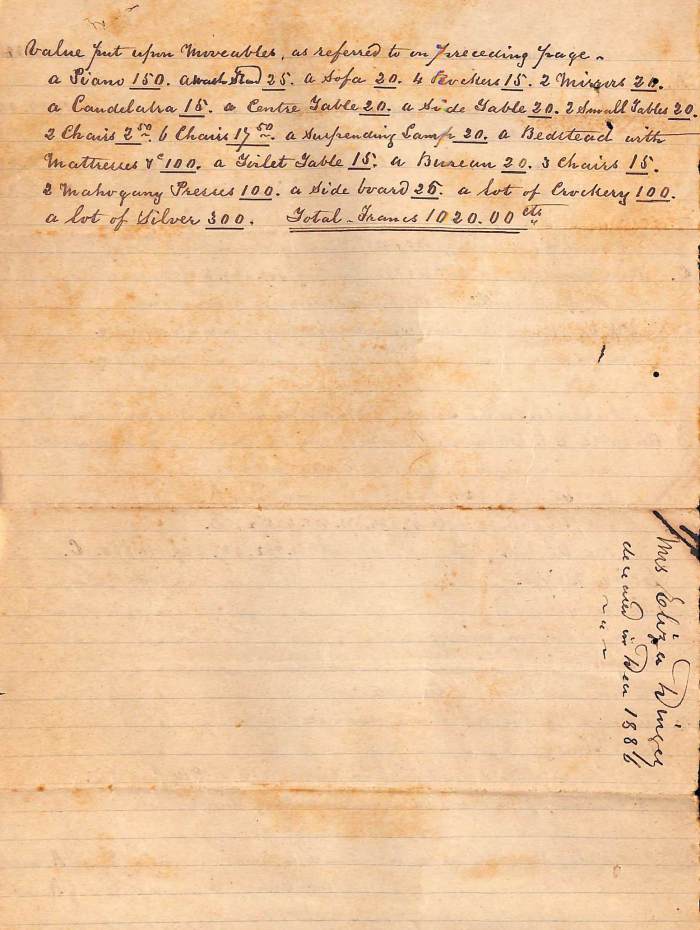 Value put upon Moveables, as referred to on preceding page.
a Piano 150. a wash Stand 25. a Sofa 20. 4 Rockers 15. 2 Mirrors 20.
a Candelabra 15. a Centre Table 20. a Side Table 20. 2 Small Tables 20.
2 Chairs 2 50. 6 Chairs 17 50. a Suspending Lamp 20. a Bedstead with
Mattresses &c 100. a Toilet Table 15. a Bureau 20. 3 Chairs 15.
2 Mahogany Presses 100. a Side board 25. a lot of Crockery 100.
a lot of Silver 300. Total - Francs 1020.00 cts
Mrs Eliza
deceased in Decr 1886